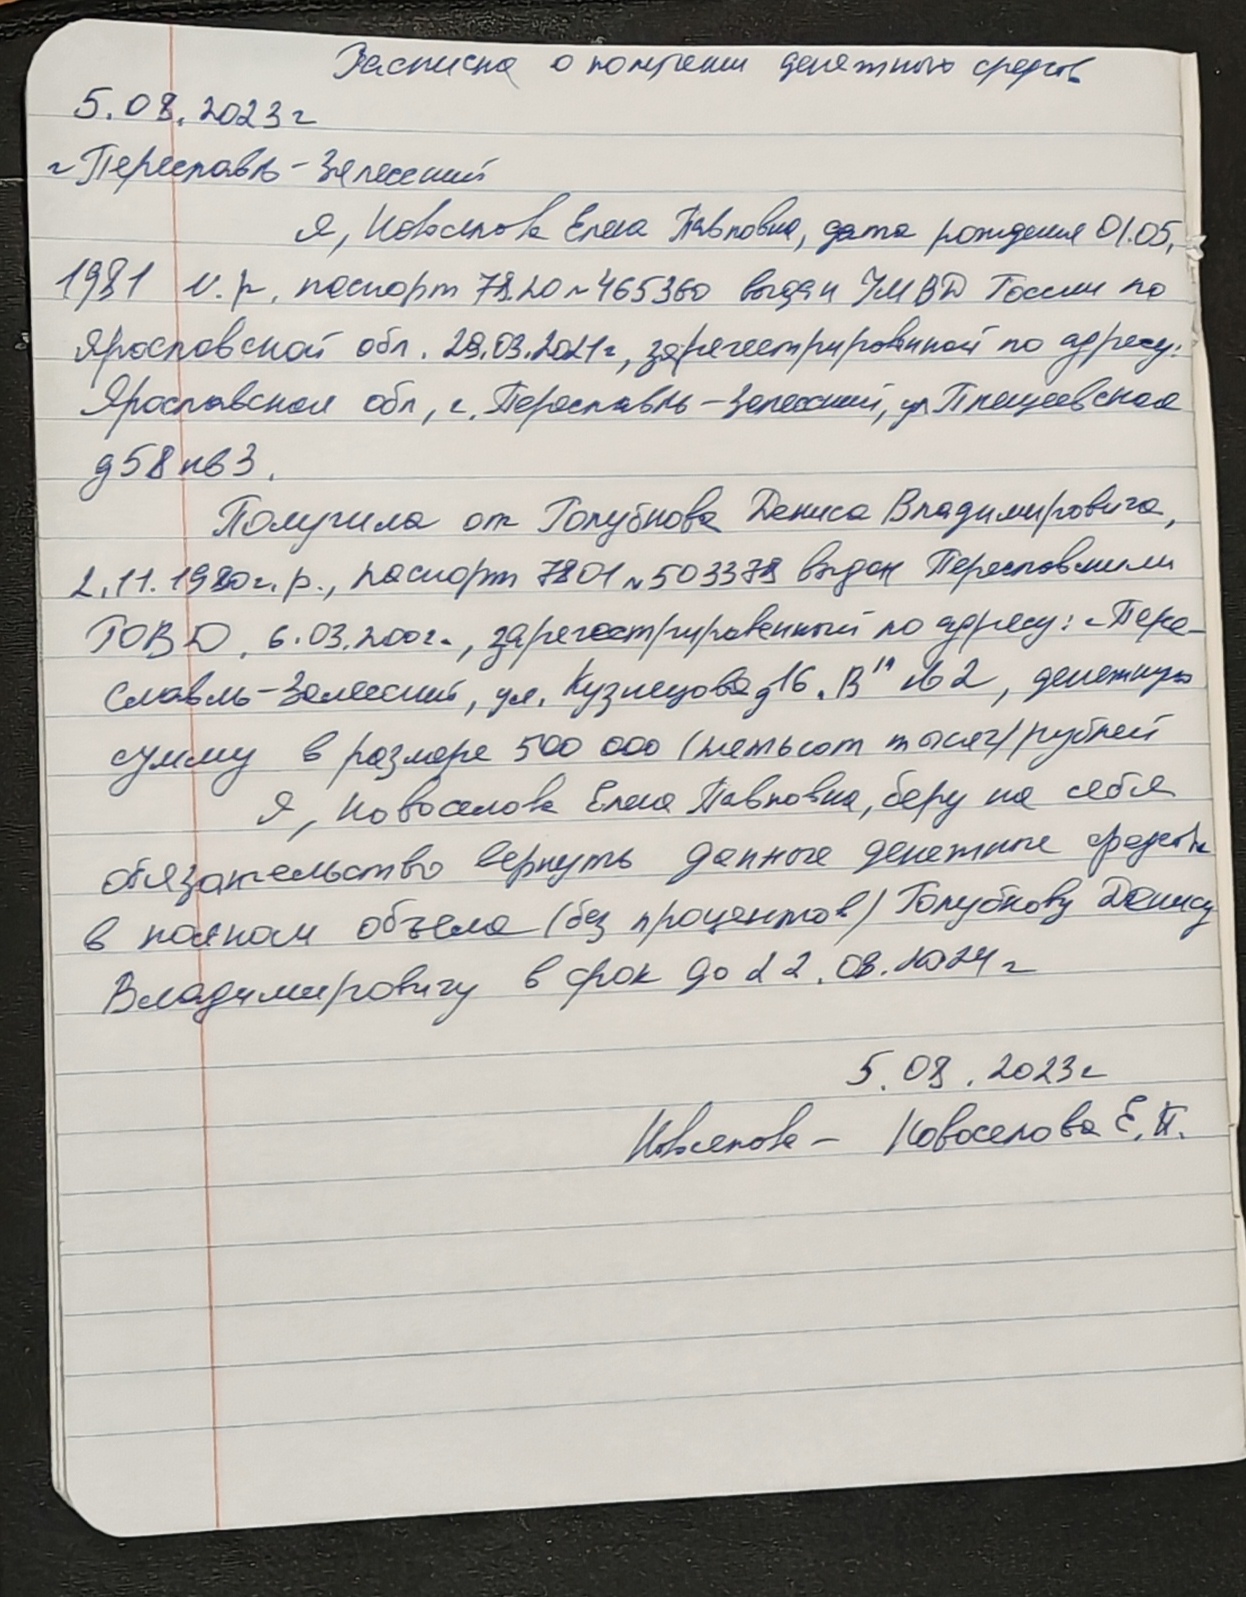 Расписка о получении денежных средств
5.08.2023г
г Переславль-Залесский
Я, Новоселова Елена Павловна, дата рождения 01.05.
1981 паспорт 7820 №465360 выдан УМВД России по
Ярославской обл. 29.03.2021г, зарегестрированной по адресу:
Ярославская обл, г. Переславль-Залесский, ул Плещеевская
д 58 кв 3.
Получила от Голубкова Дениса Владимировича,
2.11.1980г.р., паспорт 7801 №503378 выдан Переславским
ГОВД, 6.03. зарегестрированный по адресу: г Пере-
славль-Залесский, ул. Кузнецова д16 "В" 2, денежную
сумму в размере 500 000 (пятьсот тысяч) рублей
Я, Новоселова Елена Павловна, беру на себя
обязательство вернуть данные денежные средства
в полном объеме (без процентов) Голубкову Денису
Владимировичу в срок до 22.08.2024г
5.08.2023г
Новоселова – Новоселова Е.П.